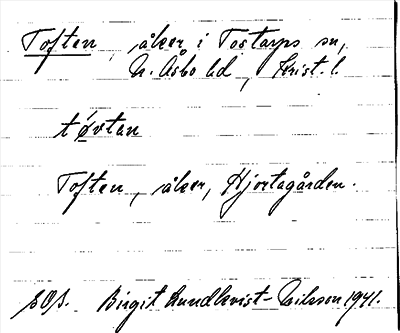 Toften, åker i Tostarps sn,
N. Åsbo hd, Krist. l.
tǿvtan
Toften, åker, Hjortagården.
SOS. Birgit Lundkvist-Nilsson 1941.